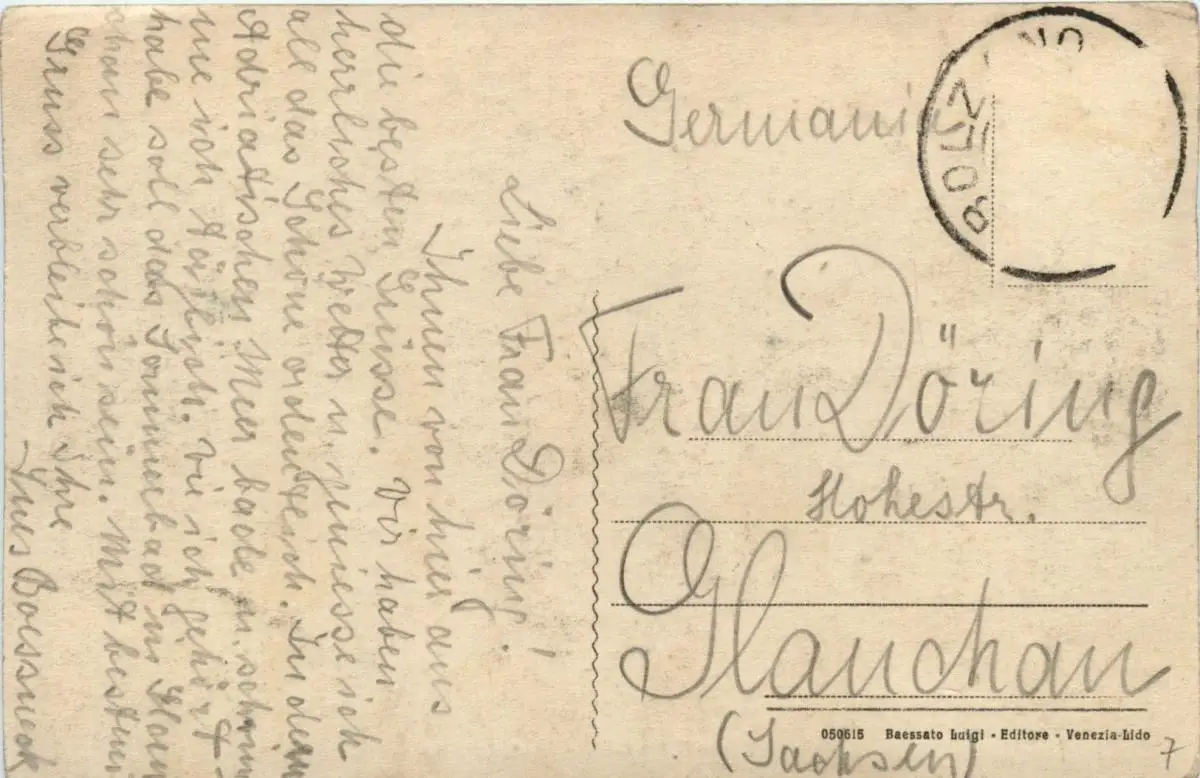 Liebe Frau Döring!
Ihnen von hier aus
die besten Grüsse. Wir haben
herrliches Wetter u. geniesse ich
all das Schöne ordentlich. In dem
Adriatischen Meer bade u. schwim
me ich täglich. Wie ich gehört
habe soll das Sommerbad in Glau
chau sehr schön sein. Mit bestem
Gruss verbleibe ich Ihre
Boessneck
Germania
BOLZANO
Frau Döring
Hohestr.
Glauchau
(Sachsen)
050615 Baessato Luigi - Editore - Venezia-Lido
7